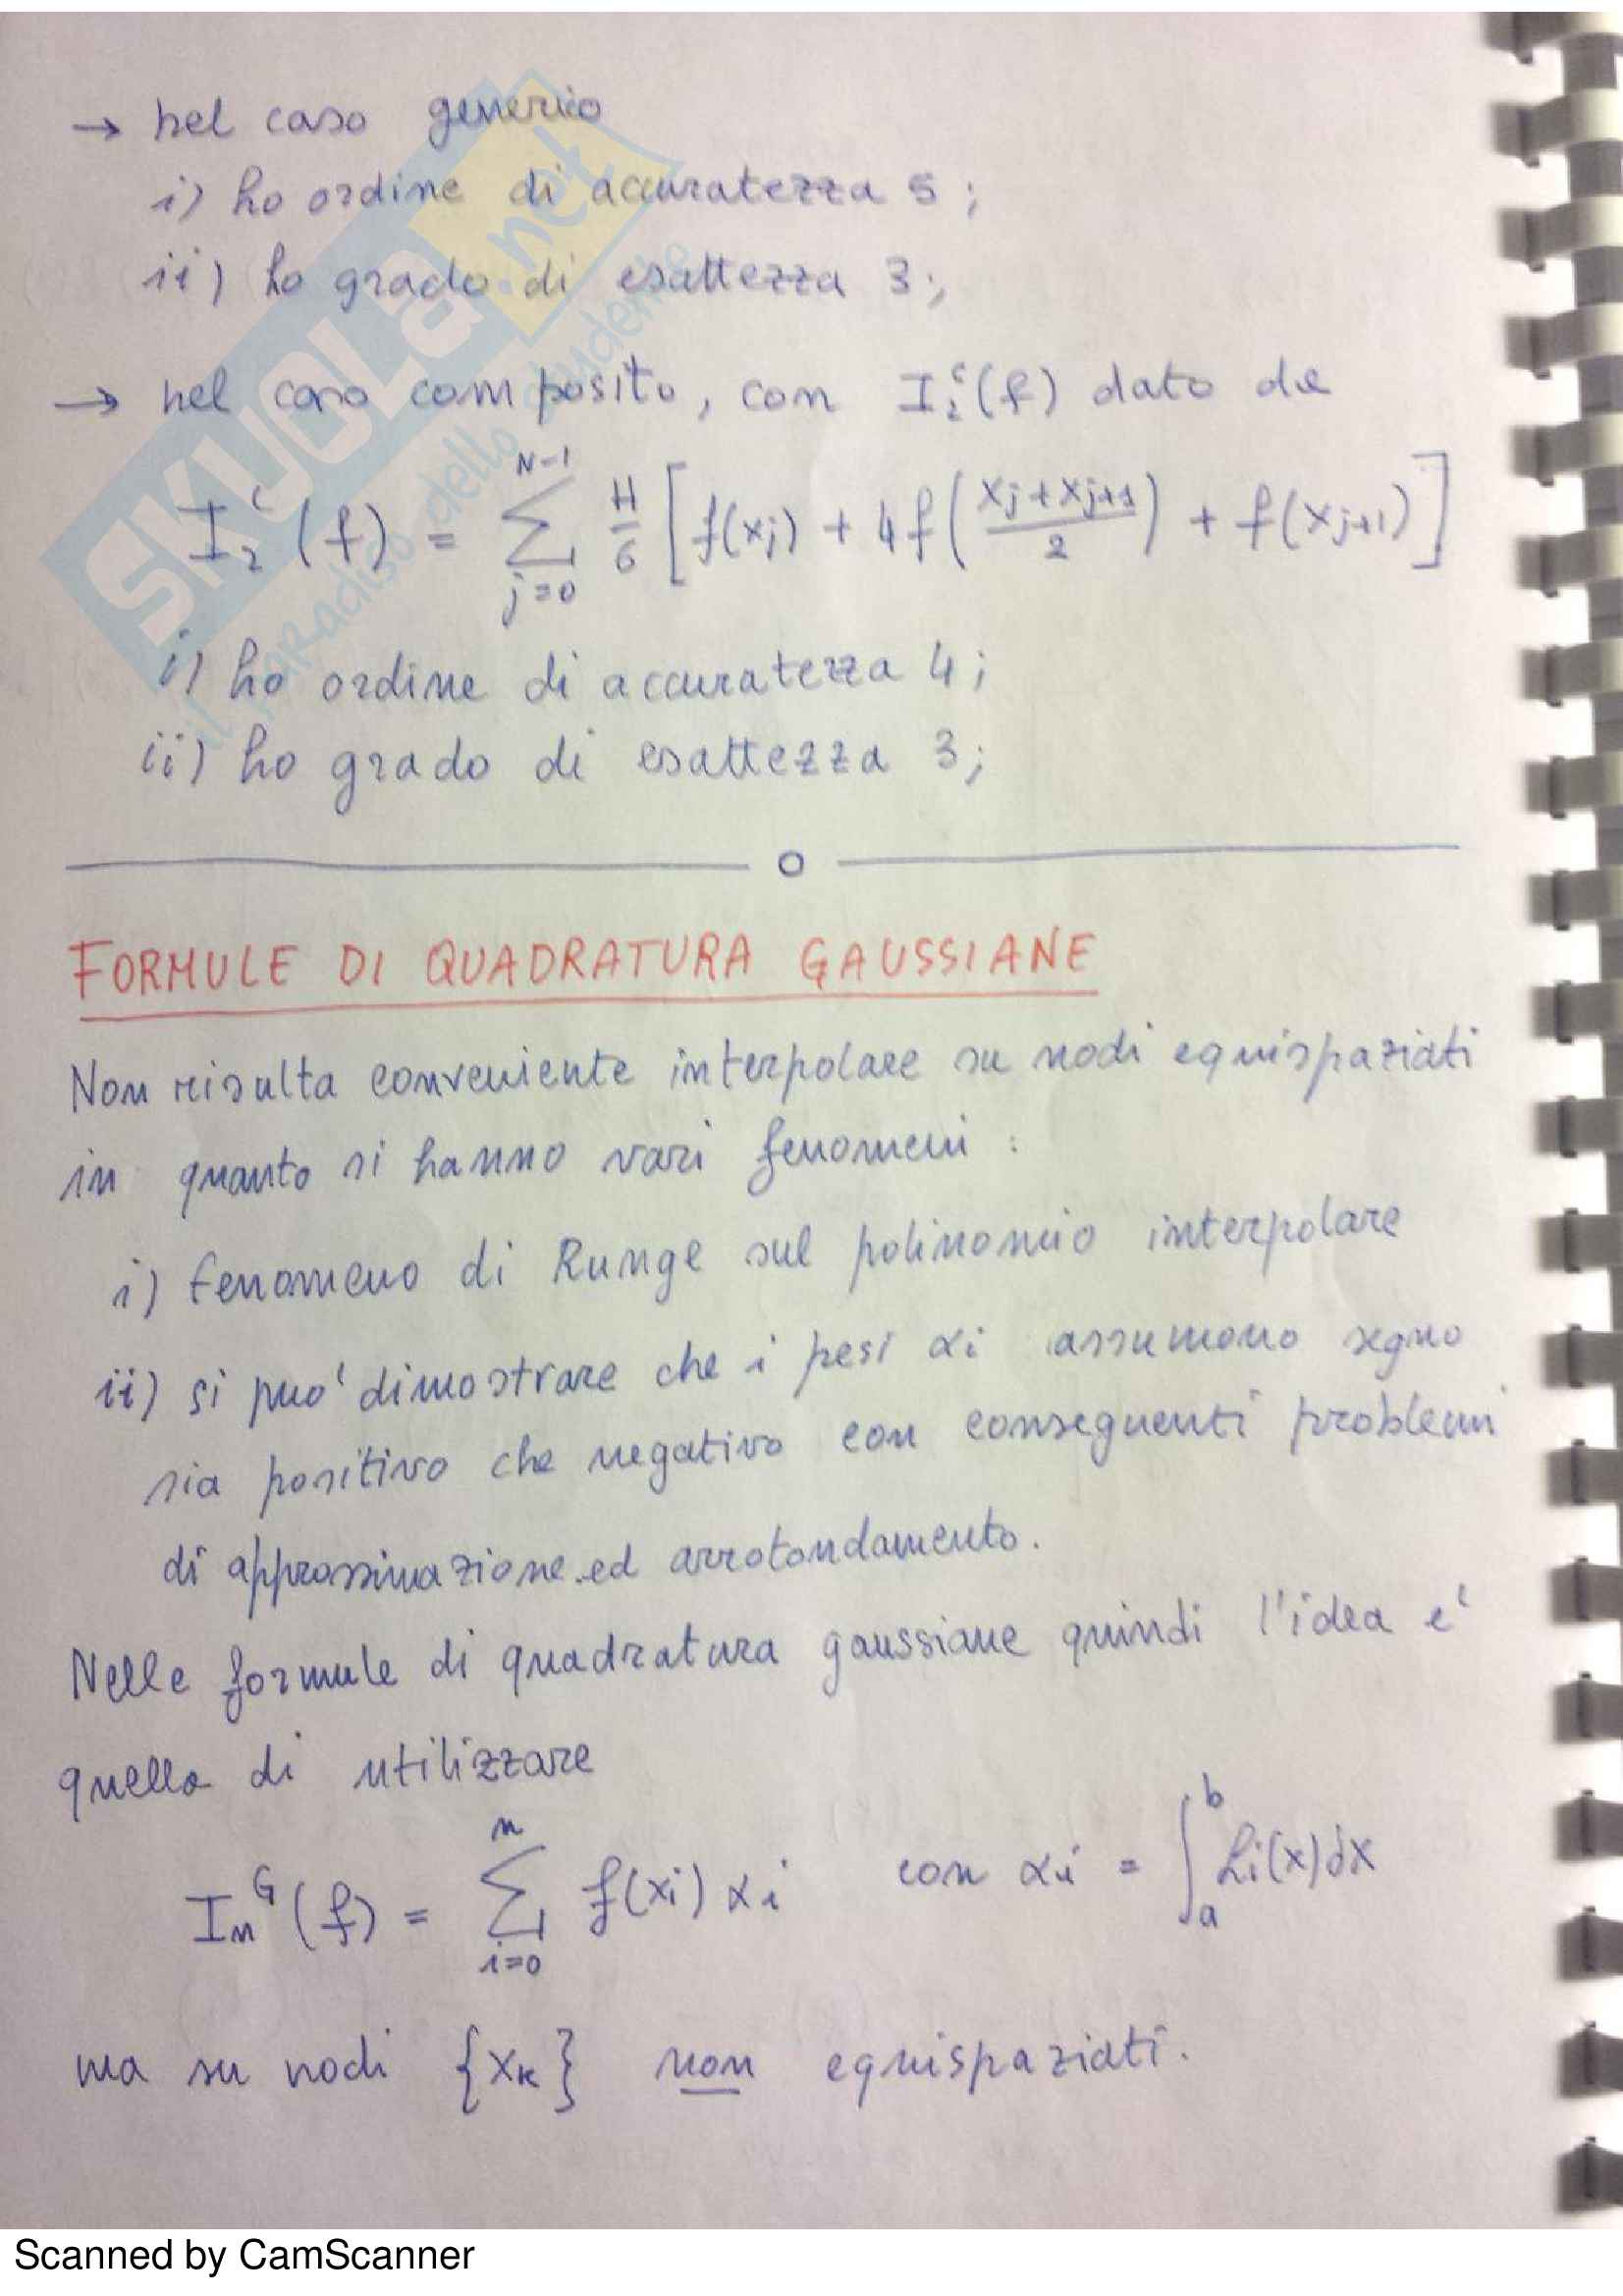 → nel caso generico
i) ho ordine di accuratezza 5;
ii) ho grado di esattezza 3;
→ nel caso composito, con I₂ᶜ(f) dato da
I₂ᶜ(f) = ∑_{j=0}^{N-1} H/6 [f(xj) + 4f((xj+xj+1)/2) + f(xj+1)]
i) ho ordine di accuratezza 4;
ii) ho grado di esattezza 3;
FORMULE DI QUADRATURA GAUSSIANE
Non risulta conveniente interpolare su nodi equispaziati
in quanto si hanno vari fenomeni:
i) fenomeno di Runge sul polinomio interpolare
ii) si puo' dimostrare che i pesi αi assumono segno
sia positivo che negativo con conseguenti problemi
di approssimazione ed arrotondamento.
Nelle formule di quadratura gaussiane quindi l'idea e'
quella di utilizzare
Iₙᴳ(f) = ∑_{i=0}^{n} f(xi) αi con αi = ∫_a^b Li(x)dx
ma su nodi {xk} non equispaziati.
SKUOLA.net
il paradiso dello studente
Scanned by CamScanner